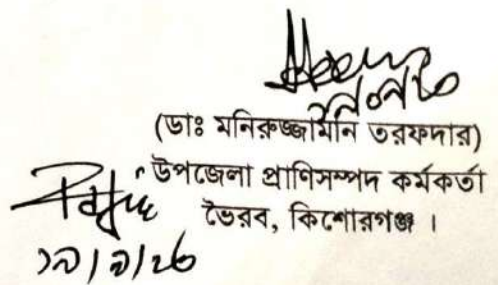 (ডাঃ মনিরুজ্জামান তরফদার)
উপজেলা প্রাণিসম্পদ কর্মকর্তা
ভৈরব, কিশোরগঞ্জ ।